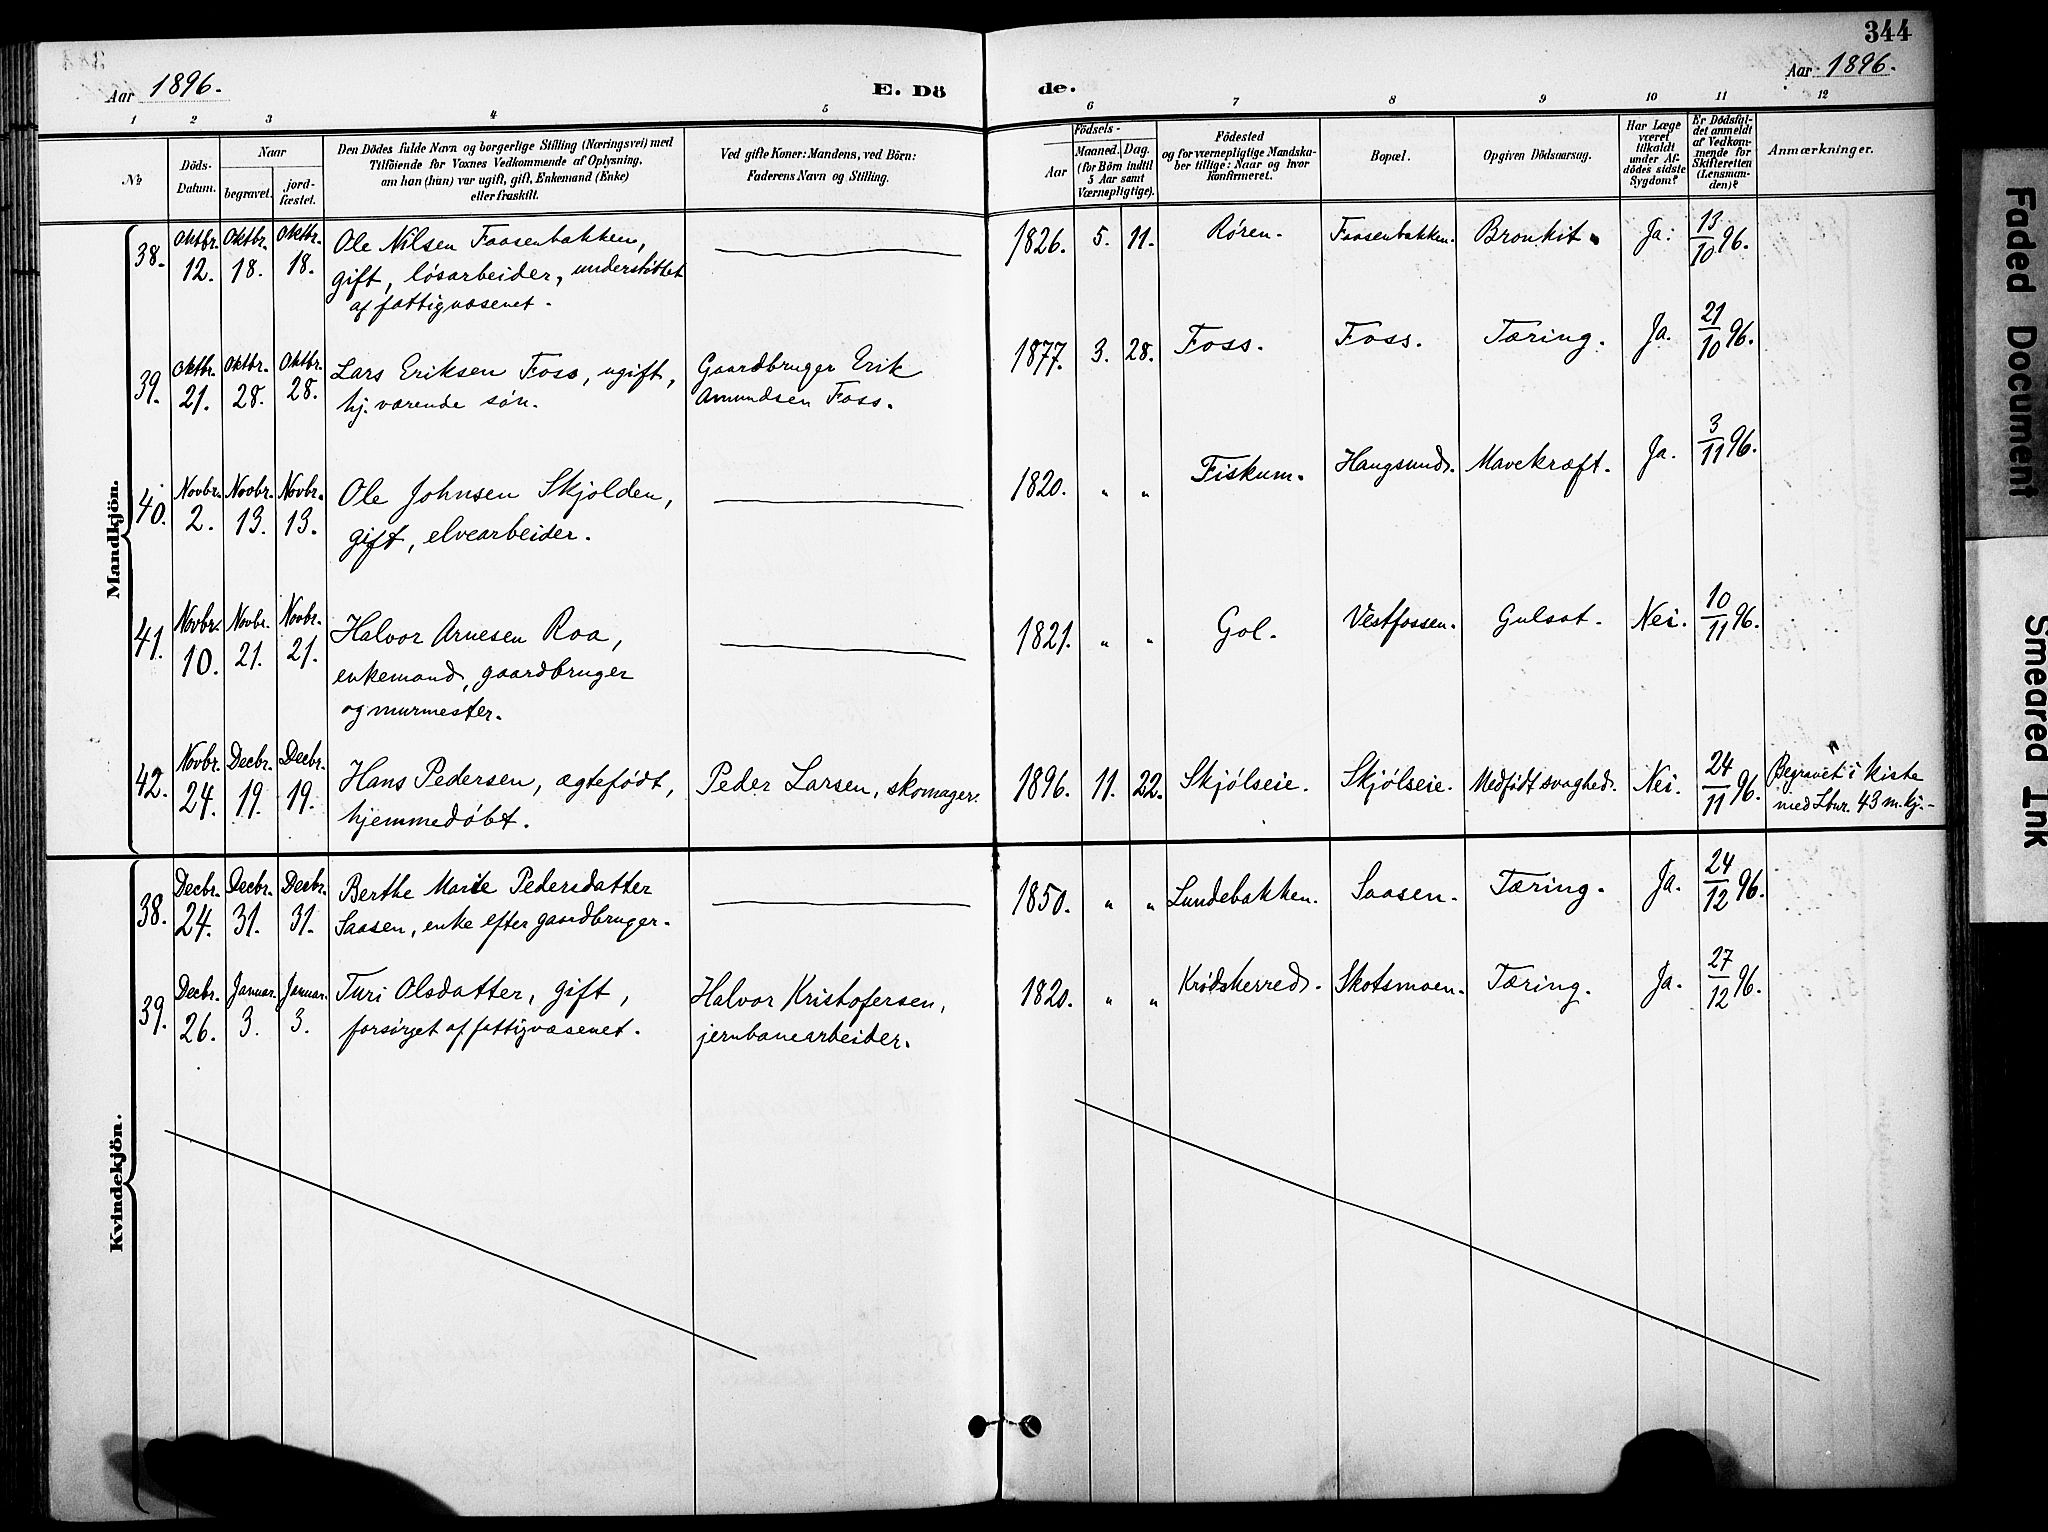 344
Aar 1896.
E. Dö
de.
Aar 1896.
1 2 3 4 5 6 7 8 9 10 11 12
№
Döds-
Datum.
Naar
begravet.
jord-
fæstet.
Den Dödes fulde Navn og borgerlige Stilling (Næringsvei) med
Tilföiende for Voxnes Vedkommende af Oplysning,
om han (hun) var ugift, gift, Enkemand (Enke)
eller fraskilt.
Ved gifte Koner: Mandens, ved Börn:
Faderens Navn og Stilling.
Födsels-
Aar
Maaned. Dag.
(for Börn indtil
5 Aar samt
Værnepligtige).
Födested
og for værnepligtige Mandska-
ber tillige: Naar og hvor
Konfirmeret.
Bopæl.
Opgiven Dödsaarsag.
Har Læge
været
tilkaldt
under Af-
dödes sidste
Sygdom?
Er Dödsfal-
det anmeldt
af Vedkom-
mende for
Skifteretten
(Lensman-
den)?
Anmærkninger.
Mandkjön.
38. Oktbr. 12. Oktbr. 18. Oktbr. 18. Ole Nilsen Faasenbakken, 1826. 5. 11. Røren. Faasenbakken. Bronkit. Ja. 13/10 96.
gift, løsarbeider, understøttet
af fattigvæsenet.
39. Oktbr. 21. Oktbr. 28. Oktbr. 28. Lars Eriksen Foss, ugift, Gaardbruger Erik 1877. 3. 28. Foss. Foss. Tæring. Ja. 21/10 96.
hj. værende søn. Amundsen Foss.
40. Novbr. 2. Novbr. 13. Novbr. 13. Ole Johnsen Skjolden, 1820. " " Fiskum. Haugsund. Mavekræft. Ja. 3/11 96.
gift, elvearbeider.
41. Novbr. 10. Novbr. 21. Novbr. 21. Halvor Arnesen Roa, 1821. " " Gol. Vestfossen. Gulsot. Nei. 10/11 96.
enkemand, gaardbruger
og murmester.
42. Novbr. 24. Decbr. 19. Decbr. 19. Hans Pedersen, ægtefødt, Peder Larsen, skomager. 1896. 11. 22. Skjølseie. Skjølseie. Medfødt svaghed. Nei. 24/11 96. Begravet i kiste
hjemmedøbt. med Lbnr. 43 m.kj.-
Kvindekjön.
38. Decbr. 24. Decbr. 31. Decbr. 31. Berthe Marie Pedersdatter 1850. " " Lundebakken. Saasen. Tæring. Ja. 24/12 96.
Saasen, enke efter gaardbruger.
39. Decbr. 26. Januar. 3. Januar. 3. Turi Olsdatter, gift, Halvor Kristofersen, 1820. " " Krødsherred. Skotsmoen. Tæring. Ja. 27/12 96.
forsørget af fattigvæsenet. jernbanearbeider.
Faded Document
Smeared Ink